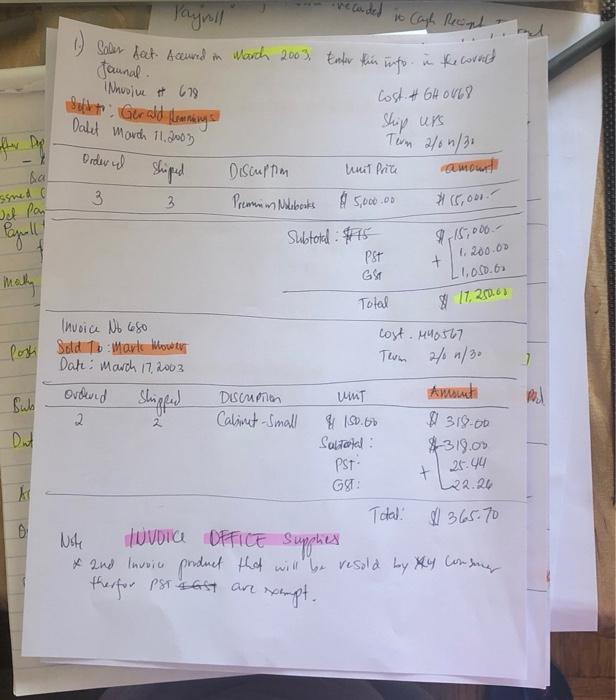 Payroll recorded in Cash Receipt
1.) Sales Acct. Accured in March 2003, Enter this info. in the correct
Journal.
Invoice # 678
Cost. # GH0468
Sold to: Gerald Hemmings
Ship UPS
Date: March 11, 2003
Term 2/0 n/30
Ordered Shipped Discuption Unit Price amount
3 3 Premium Notebooks $ 5,000.00 $ 15,000.-
Subtotal: $15 $ 15,000.-
PST + 1,200.00
GST 1,050.00
Total $ 17,250.00
Invoice No 680
Cost. MM0567
Sold To: Mark Mower
Term 2/0 n/30
Date: March 17, 2003
Ordered Shipped Discuption Unit Amount
2 2 Cabinet-Small $ 150.00 $ 318.00
Subtotal: $ 318.00
PST: + 25.44
GST: 22.26
Total: $ 365.70
Note INVOICE OFFICE Supplies
* 2nd Invoice product that will be resold by consumer
therfor PST & GST are exempt.